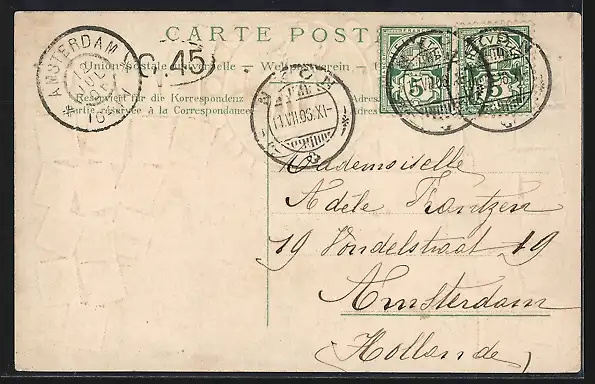 CARTE POSTALE
AMSTERDAM
0.45
Union postale universelle – Weltpostverein –
Reserviert für die Korrespondenz
Partie réservée à la Correspondance
Adres
Adres
5 5
11.VII.05.XI-
Mademoiselle
Adèle Frantzen
19 Vondelstraat 19
Amsterdam
(Hollande)